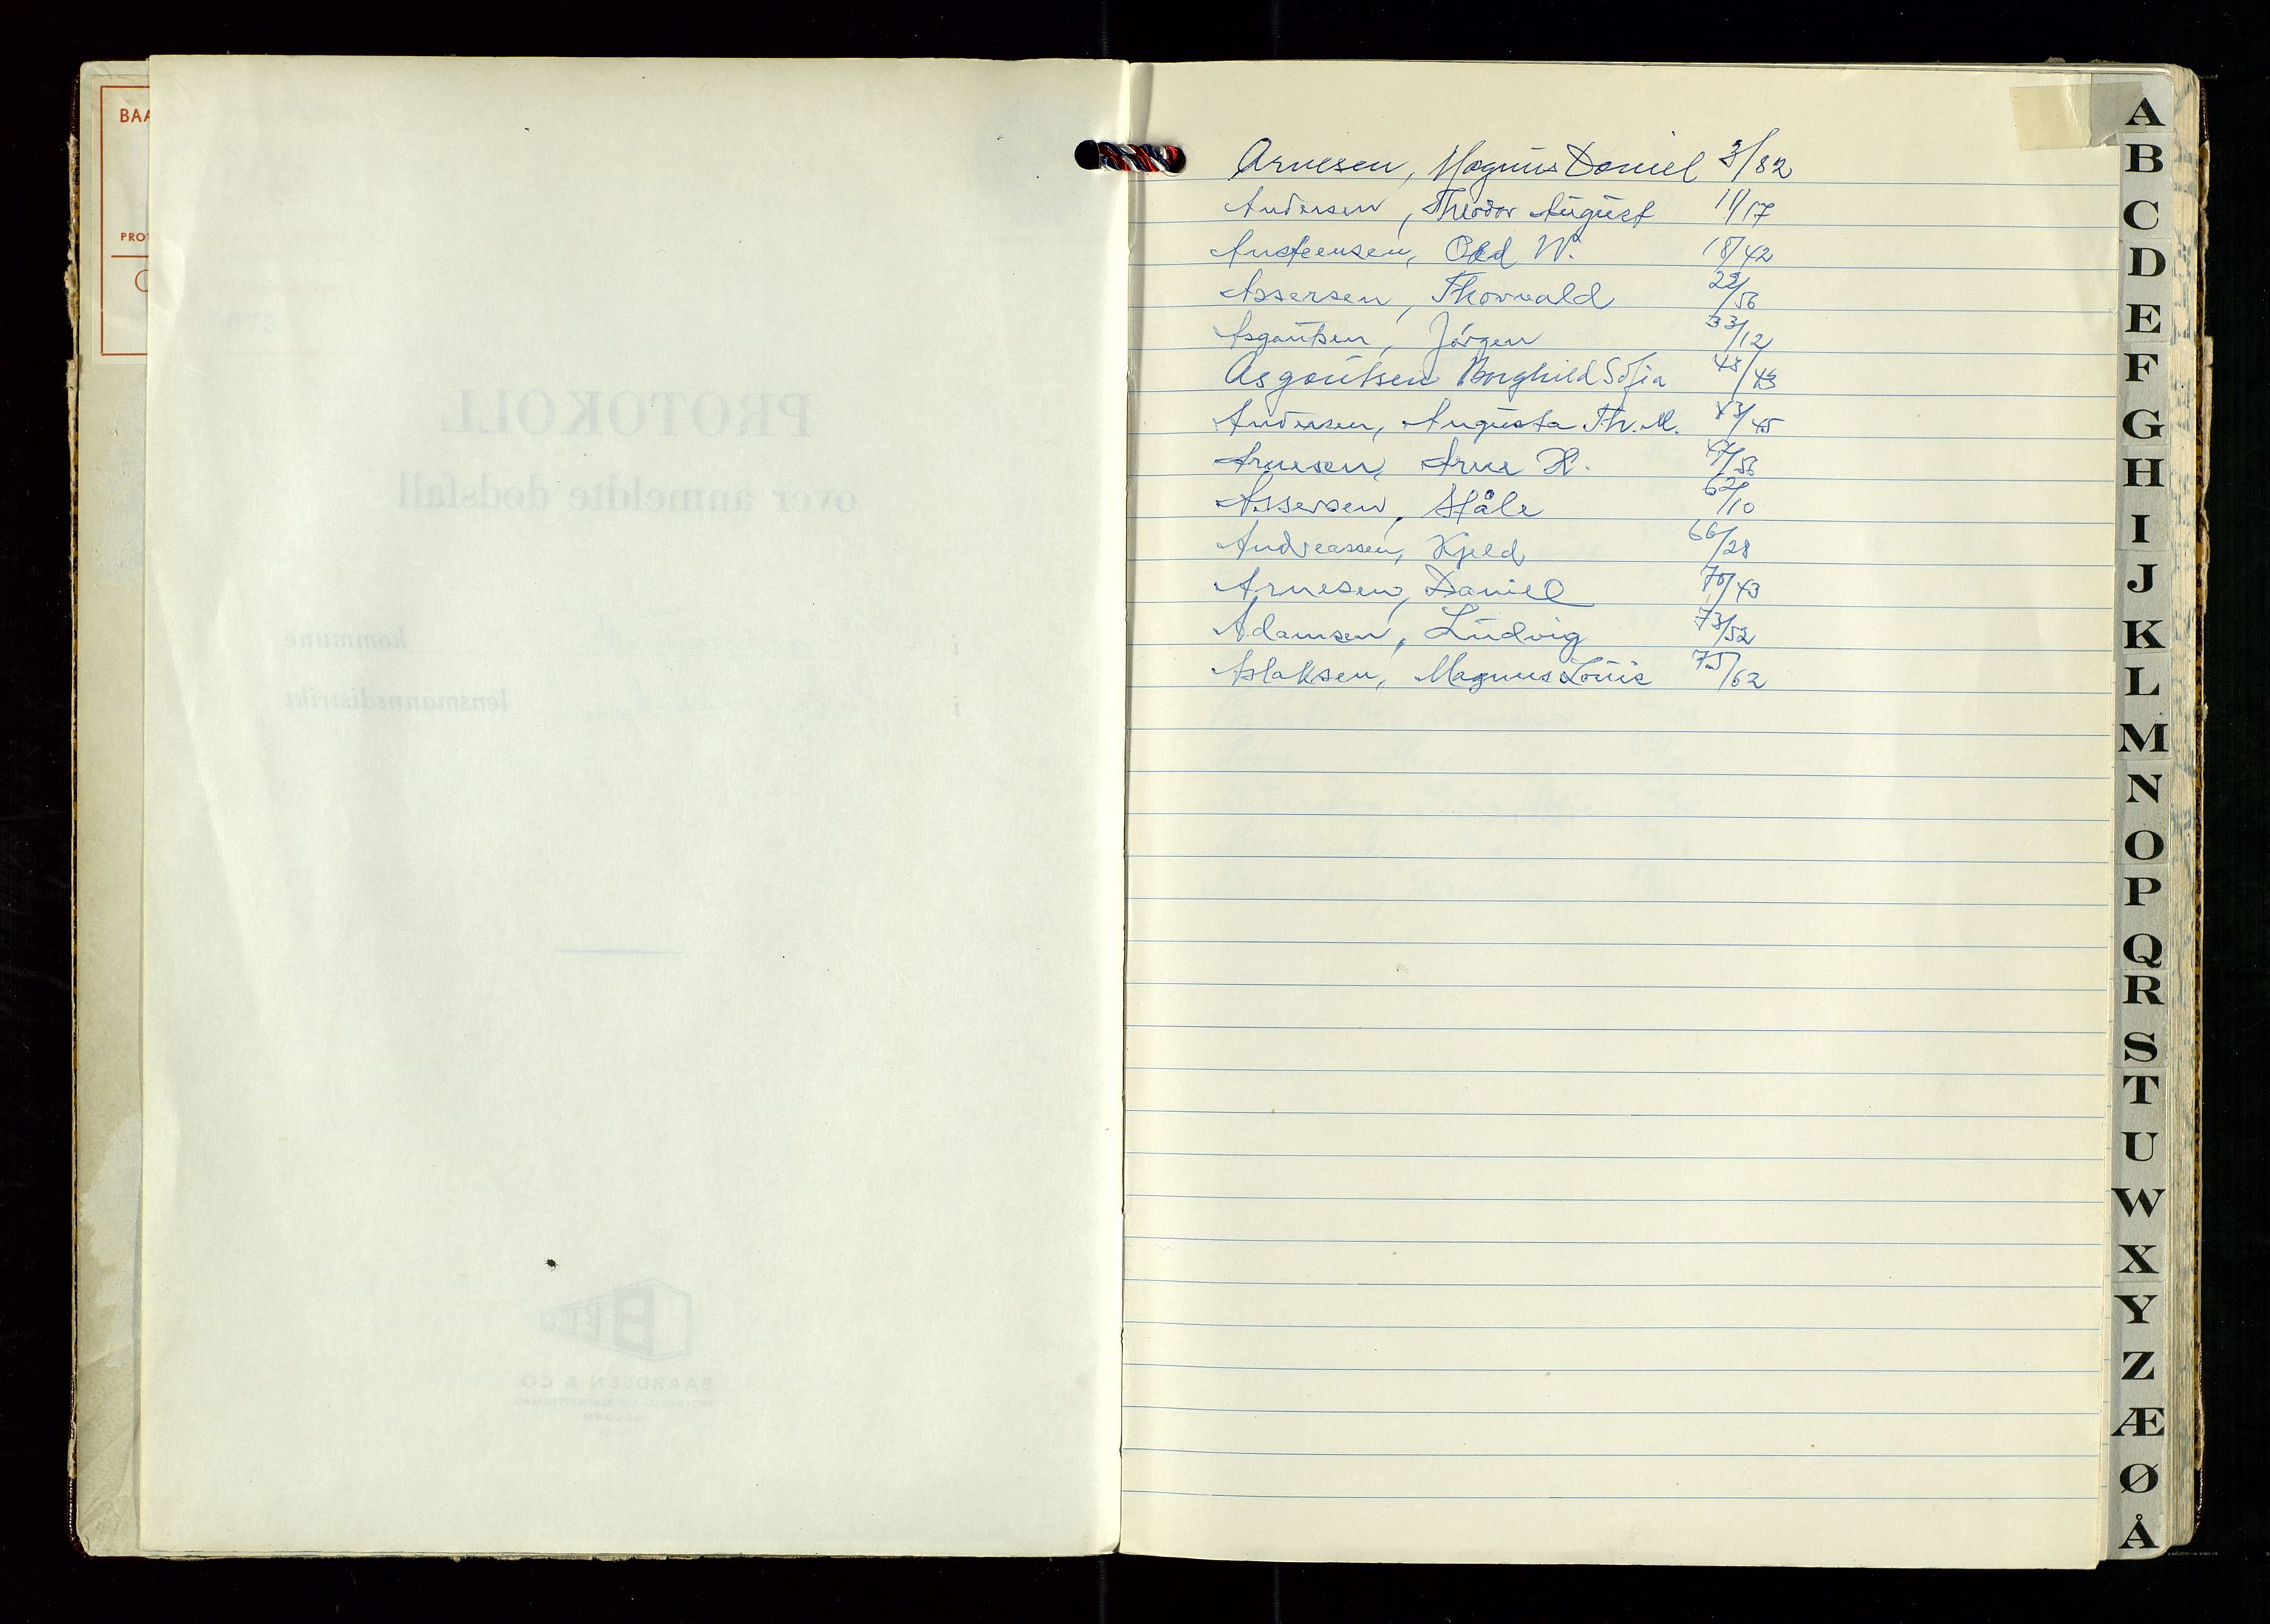 BAA
PRO
PROTOKOLL
over anmeldte dødsfall
i kommune
i lensmannsdistrikt
BAARDSEN & CO.
HALDEN
Arnesen, Magnus Daniel 3/82
Andersen, Theodor August 11/17
Austeensen, Odd W. 18/42
Assersen, Thorvald 22/56
Asgautsen, Jørgen 33/12
Asgautsen Borghild Sofia 43/43
Andersen, Augusta Th. M. 43/45
Arnesen, Arne H. 47/56
Assersen, Ståle 62/10
Andreassen, Kjeld 66/28
Arnesen, Daniel 70/43
Adamsen, Ludvig 73/52
Aslaksen, Magnus Louis 75/62
A
B
C
D
E
F
G
H
I
J
K
L
M
N
O
P
Q
R
S
T
U
W
X
Y
Z
Æ
Ø
Å